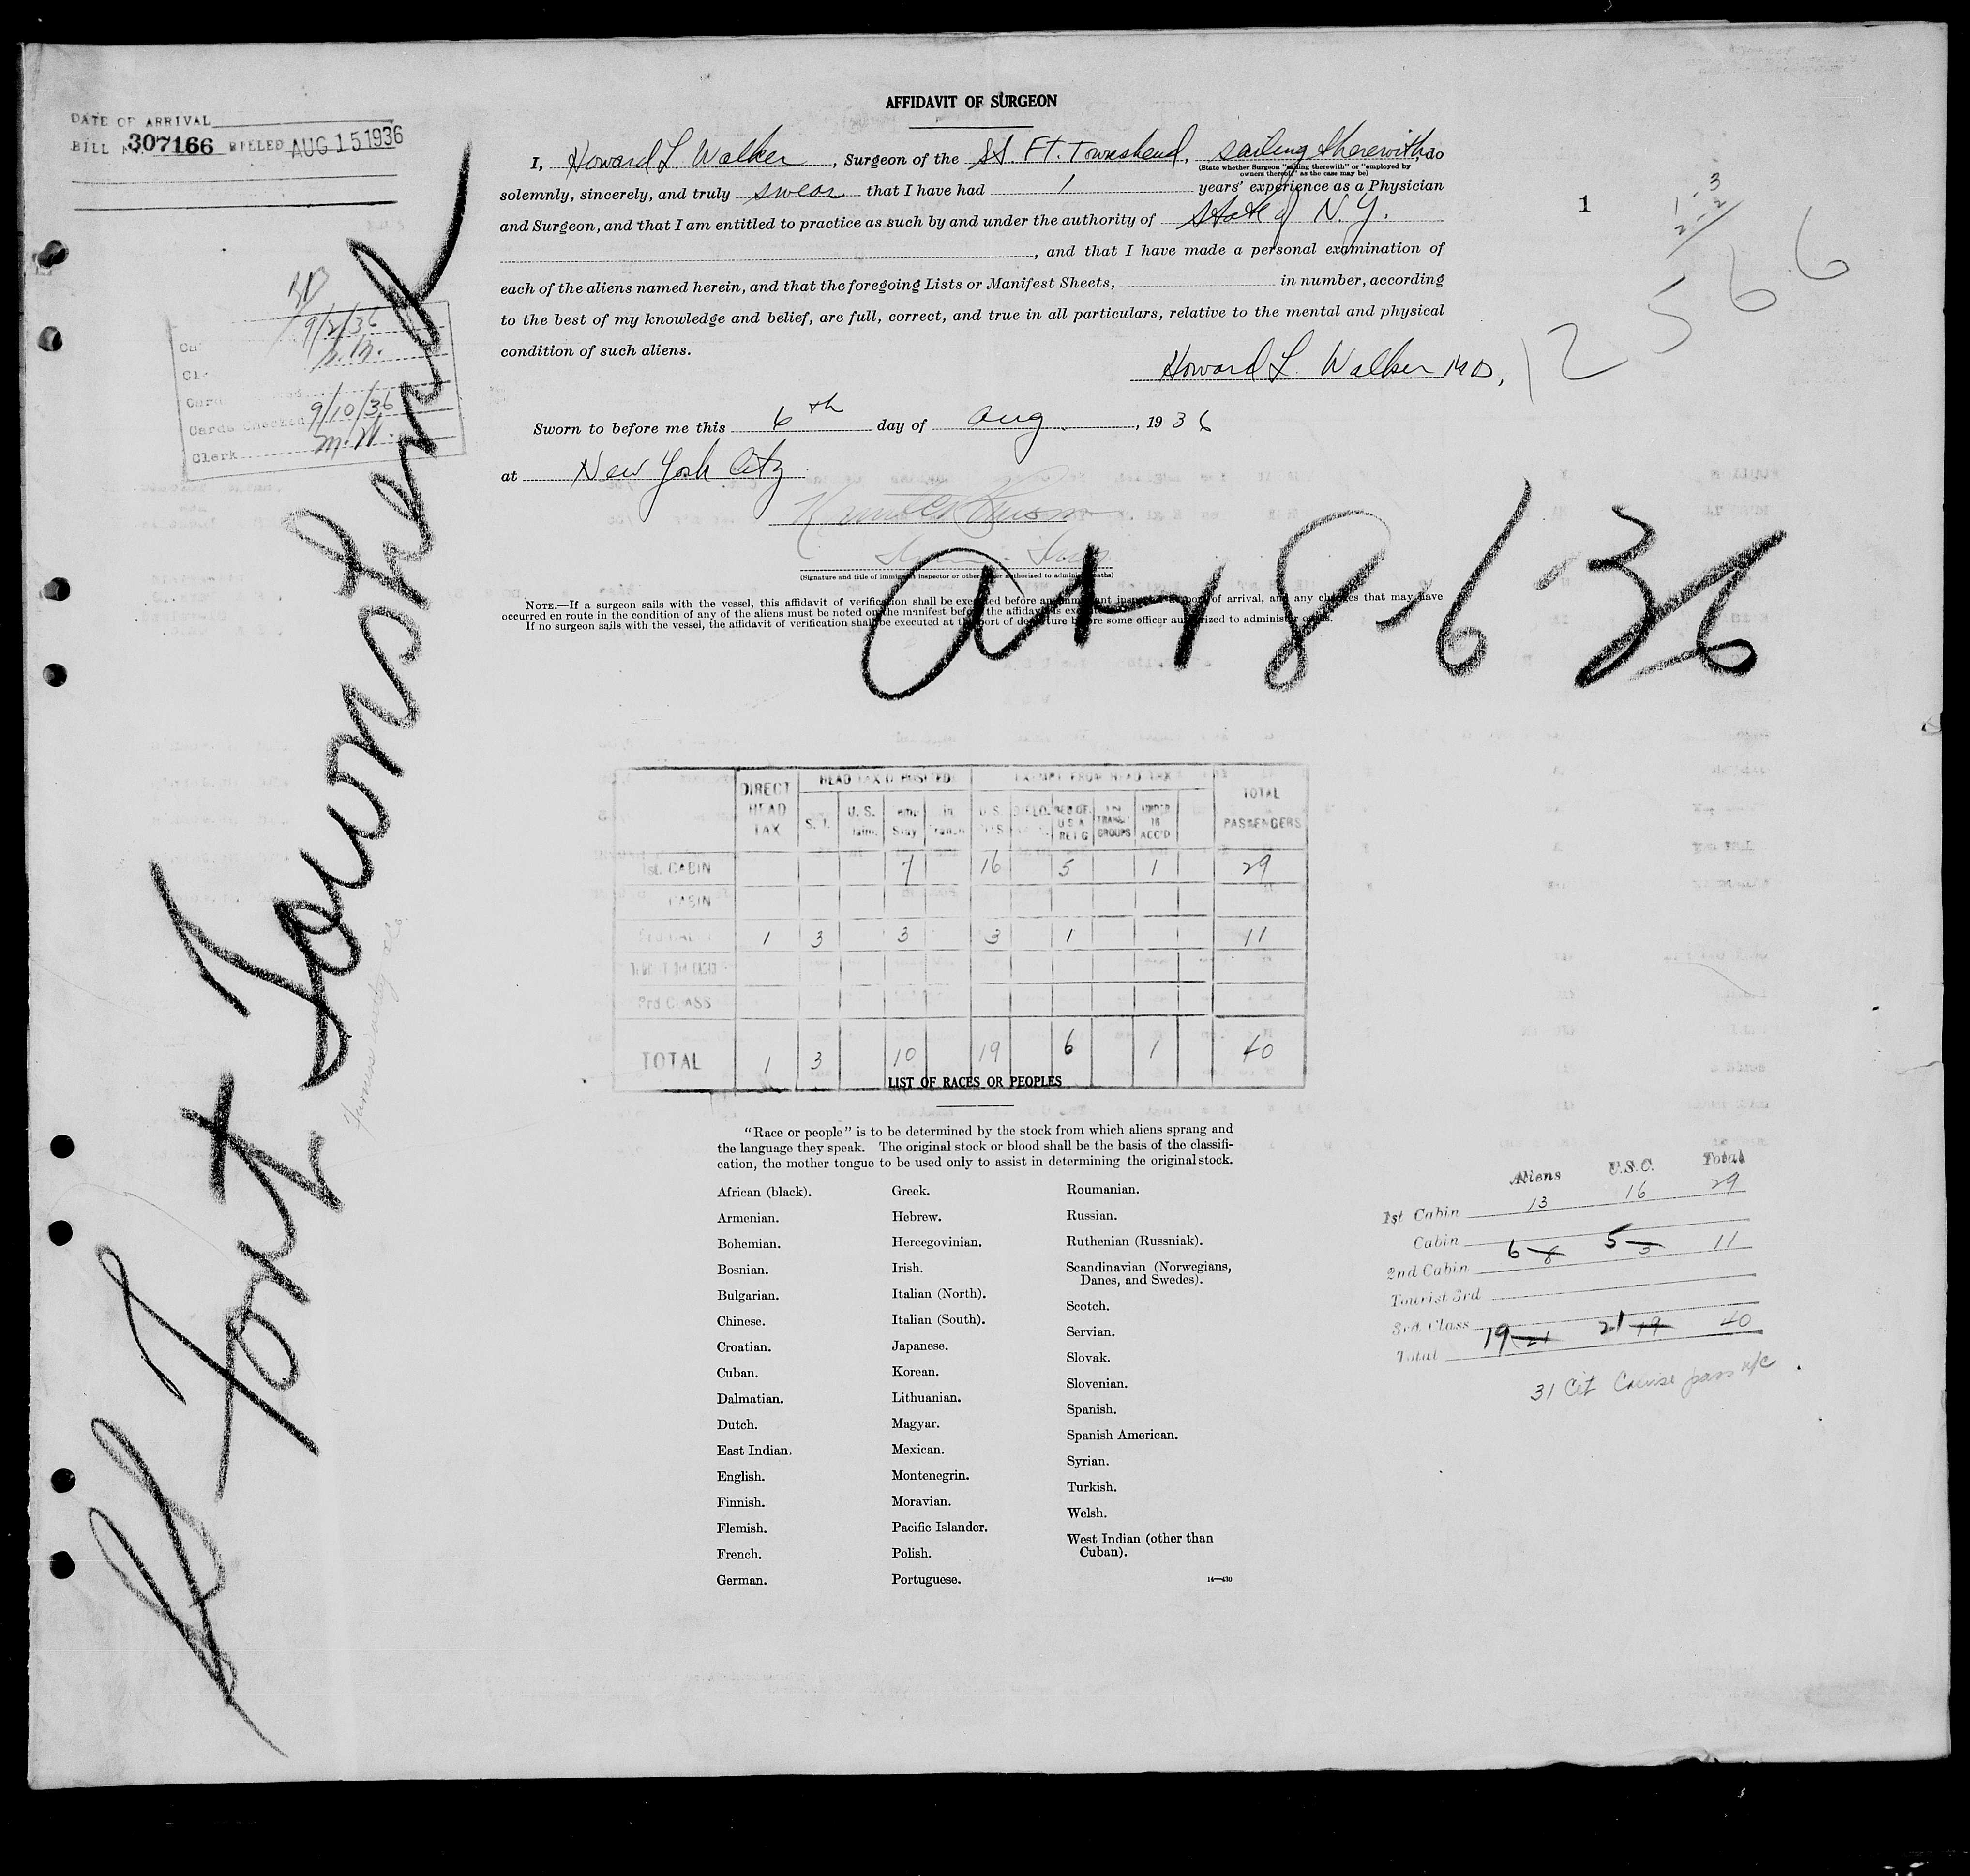 AFFIDAVIT OF SURGEON
DATE OF ARRIVAL
BILL No. 307166 BILLED AUG 15 1936
I, Howard L. Walker, Surgeon of the SS. Ft. Townshend, sailing therewith, do
(State whether Surgeon "sailing therewith" or "employed by
owners thereof," as the case may be)
solemnly, sincerely, and truly swear that I have had 1 years' experience as a Physician
and Surgeon, and that I am entitled to practice as such by and under the authority of State of N.Y.
, and that I have made a personal examination of
each of the aliens named herein, and that the foregoing Lists or Manifest Sheets, in number, according
to the best of my knowledge and belief, are full, correct, and true in all particulars, relative to the mental and physical
condition of such aliens.
Howard L. Walker M.D.,
Sworn to before me this 6th day of Aug., 1936
at New York City
(Signature and title of immigrant inspector or other officer authorized to administer oaths)
NOTE.—If a surgeon sails with the vessel, this affidavit of verification shall be executed before an immigrant inspector at port of arrival, and any changes that may have
occurred en route in the condition of any of the aliens must be noted on the manifest before the affidavit is executed.
If no surgeon sails with the vessel, the affidavit of verification shall be executed at the port of departure before some officer authorized to administer oaths.
1
3
1 - 2
2
12566
9/2/36
Cards Checked 9/10/36
Clerk M.W.
SS Fort Townshend
Arr 8-6-36
DIRECT HEAD TAX
HEAD TAX DEPOSITED
EXEMPT FROM HEAD TAX
TOTAL PASSENGERS
S. I.
U. S.
Stay
U. S.
RES OF U S A RET'G
IN TRANS. GROUPS
UNDER 16 ACC'D
1st. CABIN 7 16 5 1 29
CABIN
1 3 3 3 1 11
3rd CLASS
TOTAL 1 3 10 19 6 1 40
LIST OF RACES OR PEOPLES
"Race or people" is to be determined by the stock from which aliens sprang and
the language they speak. The original stock or blood shall be the basis of the classifi-
cation, the mother tongue to be used only to assist in determining the original stock.
African (black).
Armenian.
Bohemian.
Bosnian.
Bulgarian.
Chinese.
Croatian.
Cuban.
Dalmatian.
Dutch.
East Indian.
English.
Finnish.
Flemish.
French.
German.
Greek.
Hebrew.
Hercegovinian.
Irish.
Italian (North).
Italian (South).
Japanese.
Korean.
Lithuanian.
Magyar.
Mexican.
Montenegrin.
Moravian.
Pacific Islander.
Polish.
Portuguese.
Roumanian.
Russian.
Ruthenian (Russniak).
Scandinavian (Norwegians,
Danes, and Swedes).
Scotch.
Servian.
Slovak.
Slovenian.
Spanish.
Spanish American.
Syrian.
Turkish.
Welsh.
West Indian (other than
Cuban).
14—430
Aliens U.S.C. Total
1st Cabin 13 16 29
Cabin
2nd Cabin 6 8 5 3 11
Tourist 3rd
3rd Class
Total 19 21 21 19 40
31 Cit Cruise pass n/c